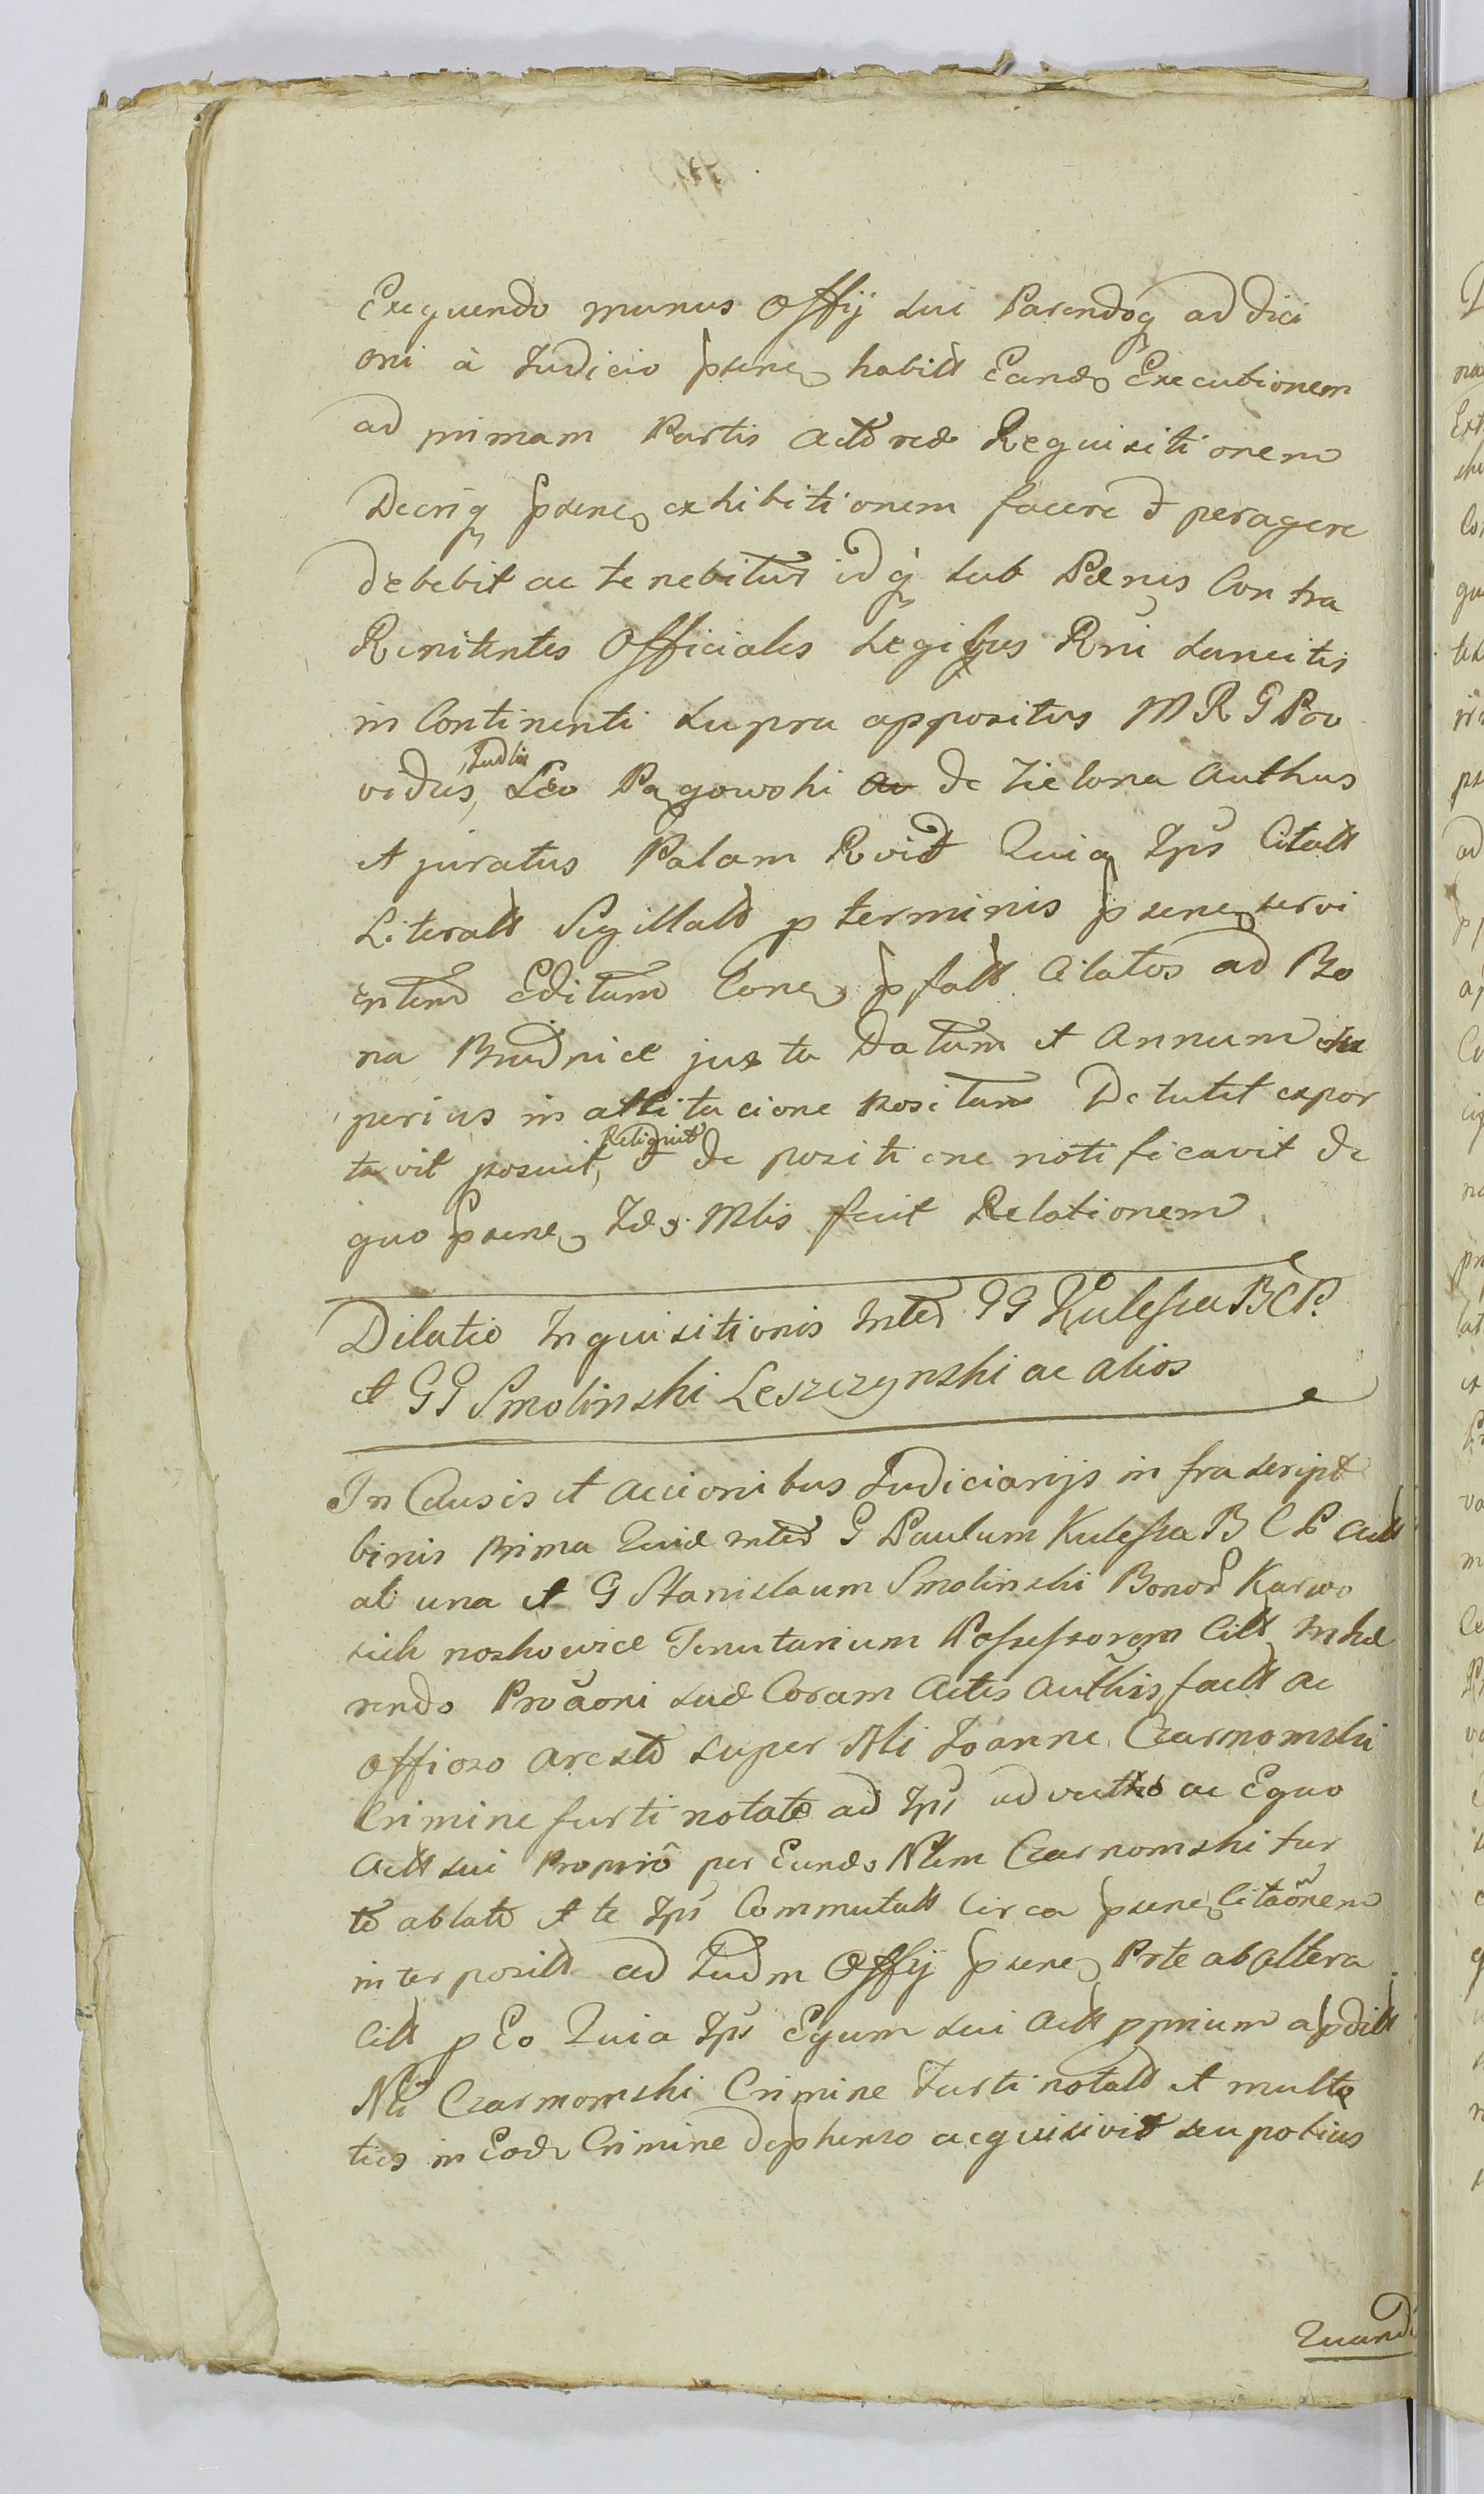 Exequendo munus Offij sui Parendoq ad dici
oni à Judicio psenq habitt Eandq Executionem
ad primam Partis Actoreæ Requisitionem
Decriq psenq exhibitionem facere & peragere
debebit ac tenebitur idq sub Pænis Contra
Renitentes Officiales Legibus Rni sancitis
in Continenti supra appositus M R G Pro
vidus, Judlis Leo Pągowski de Zielona Authus
et juratus Palam Rvit Quia Ips Citatt
Literatt Sigillatt p terminis psenq servi
entem Editum Conq pfatt Citatos ad Bo
na Brudnice juxta Datum et Annum su
perius in attitucione positum Detulit expor
tavit posuit, Reliquit & de positione notificavit de
quo psenq Idq Mlis fecit Relationem
Dilatio Inquisitionis Inter GG Kulesza B C P.
et GG Smolinski Leszczynski ac alios
In Causis et Accionibus Judiciarijs infrascript
binis Prima Quidē inter G Paulum Kulesza B C P Actt
ab una et G Stanislaum Smolinski Bonor Karwo
siek noskowice Tenutarium Possessorem Citt Inhæ
rendo Proāoni suæ Coram Actis Authis factt ac
Offioso Aresto super Nli Joanne Czarnomski
Crimine furti notato ad Ips advecto ac Equo
Actt sui Proprio per Eundq Nlem Czarnomski fur
to ablato et te Ips Commutatt circa psenq Citaōnem
interpositt ad Judm Offij psenq Pste ab altera
Citt p Eo Quia Ips Equm sui Actt pprium apditt
Nli Czarnomski Crimine Furti notatt et multo
ties in Eodq Crimine dephenso acquisivit seu potius
Quandi